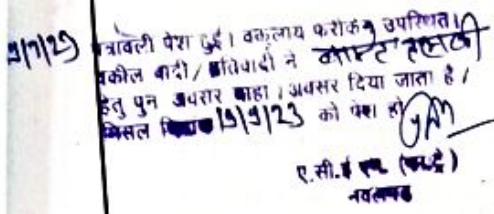 पत्रावली पेश हुई। वकलाय फरीकैन उपस्थित।
वकील वादी/प्रतिवादी ने
हेतु पुन अवसर चाहा। अवसर दिया जाता है।
मिसल 19/9/23 को पेश हो
ए.सी.ई एम
नवलगढ